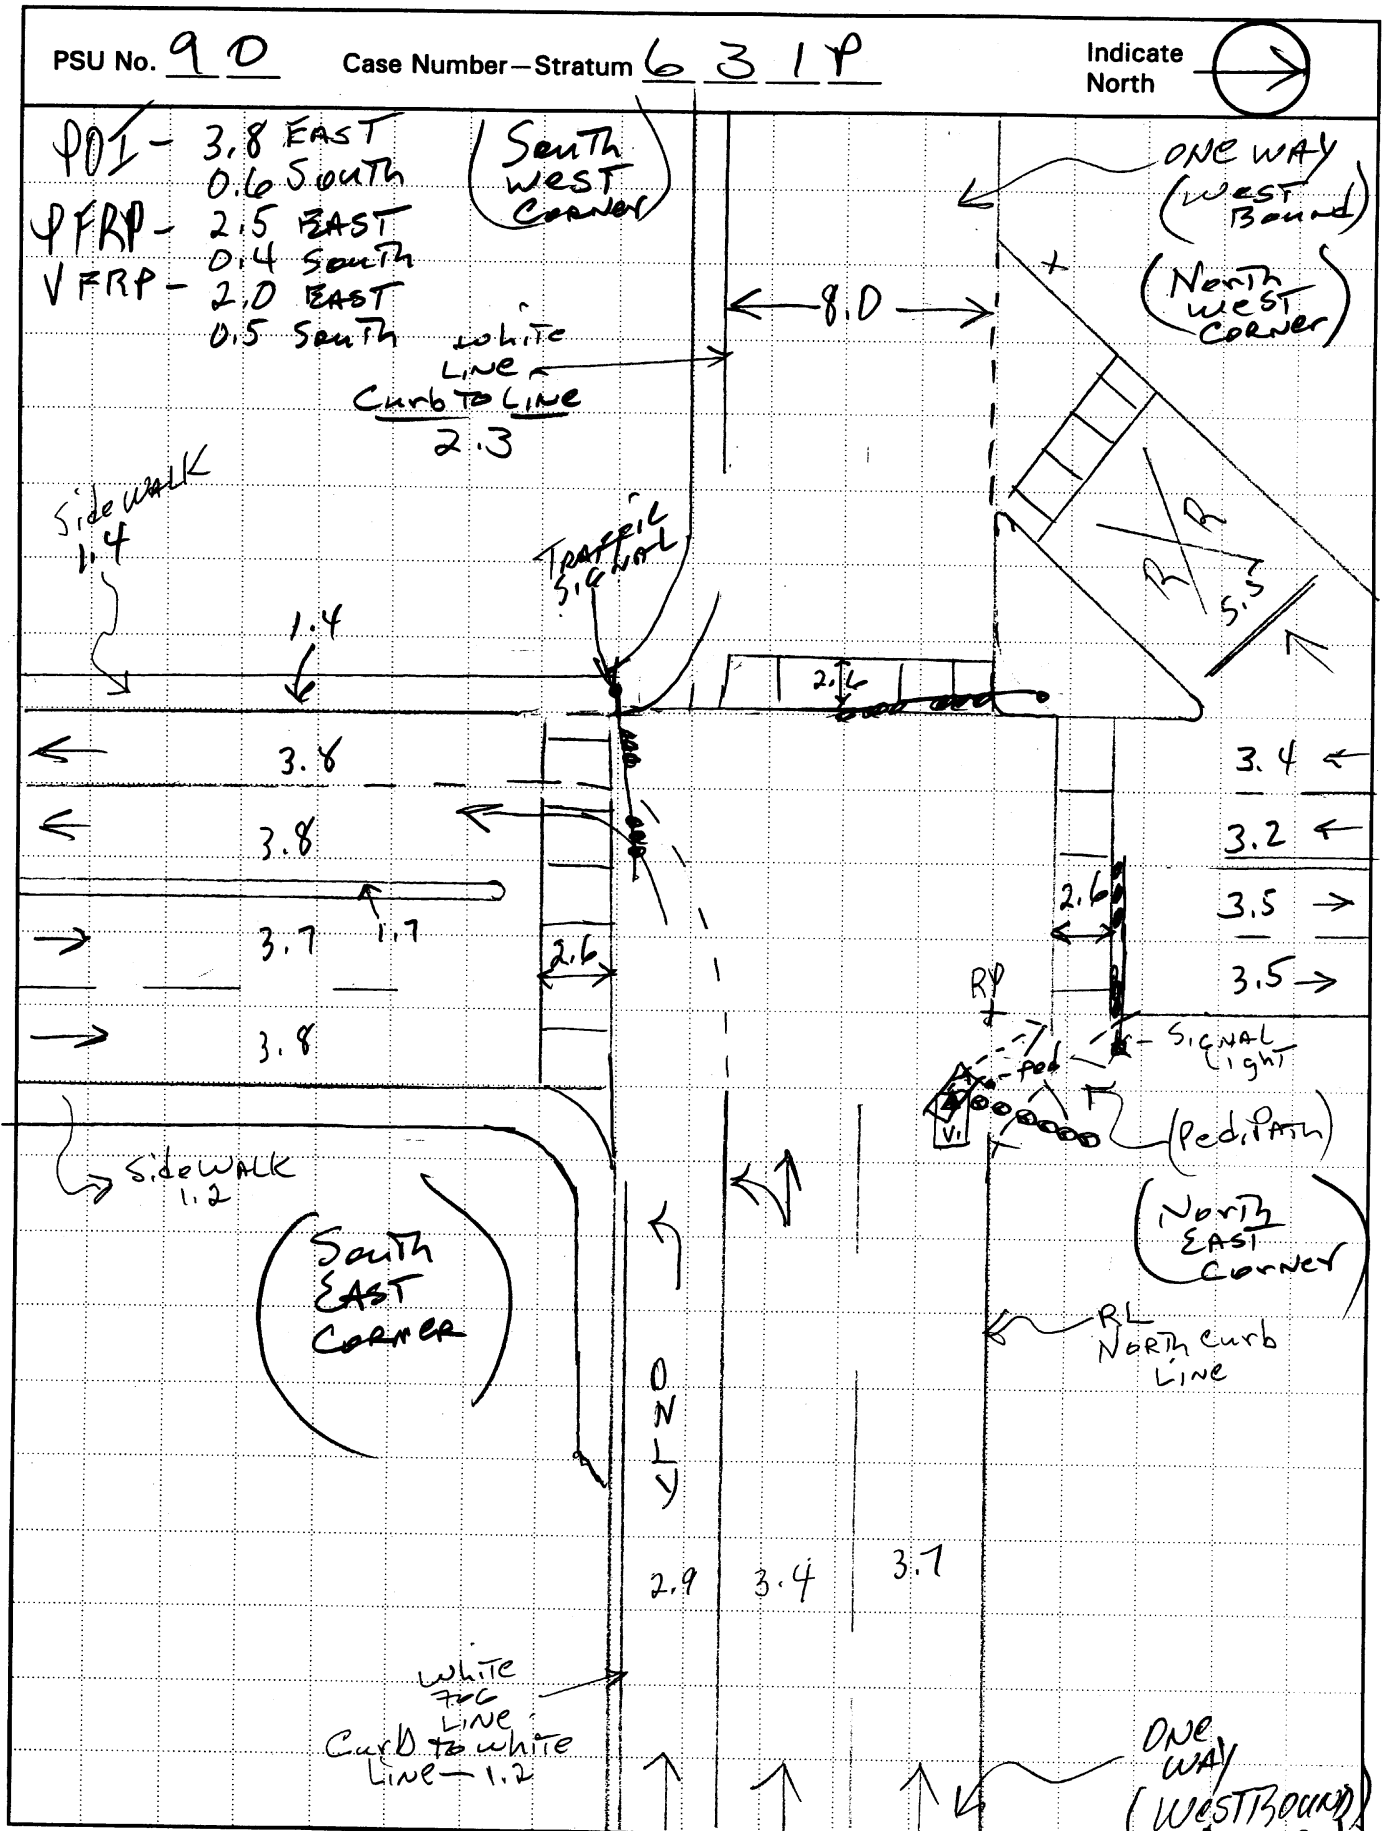 PSU No. 90
Case Number—Stratum 631P
Indicate
North
POI - 3.8 EAST
0.6 South
PFRP - 2.5 EAST
0.4 South
VFRP - 2.0 EAST
0.5 South
(South
West
Corner)
ONE WAY
(West
Bound)
(North
West
Corner)
8.0
White
Line
Curb To Line
2.3
SideWALK
1.4
TRAFFIC
SIGNAL
1.4
R R
5.5
2.6
3.8
3.8
1.7
3.7
3.8
2.6
3.4
3.2
2.6
3.5
3.5
RP
Signal
Light
Ped
V1
(Ped. Path)
SideWALK
1.2
(South
EAST
Corner)
(North
EAST
Corner)
RL
North Curb
Line
ONLY
2.9
3.4
3.7
White
FOG
Line
Curb to white
Line - 1.2
ONE
WAY
(WESTBOUND)